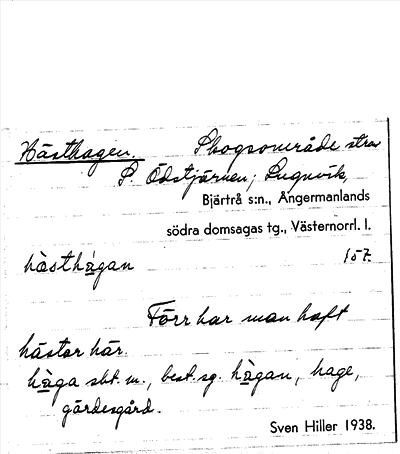 Hästhagen. Skogsområde strax
S. Ödstjärnen; Lugnvik,
Bjärtrå s:n., Ångermanlands
södra domsagas tg., Västernorrl. l.
hästhågan 157.
Förr har man haft
hästar här.
håga sbt. m., best. sg. hågan, hage,
gärdesgård.
Sven Hiller 1938.